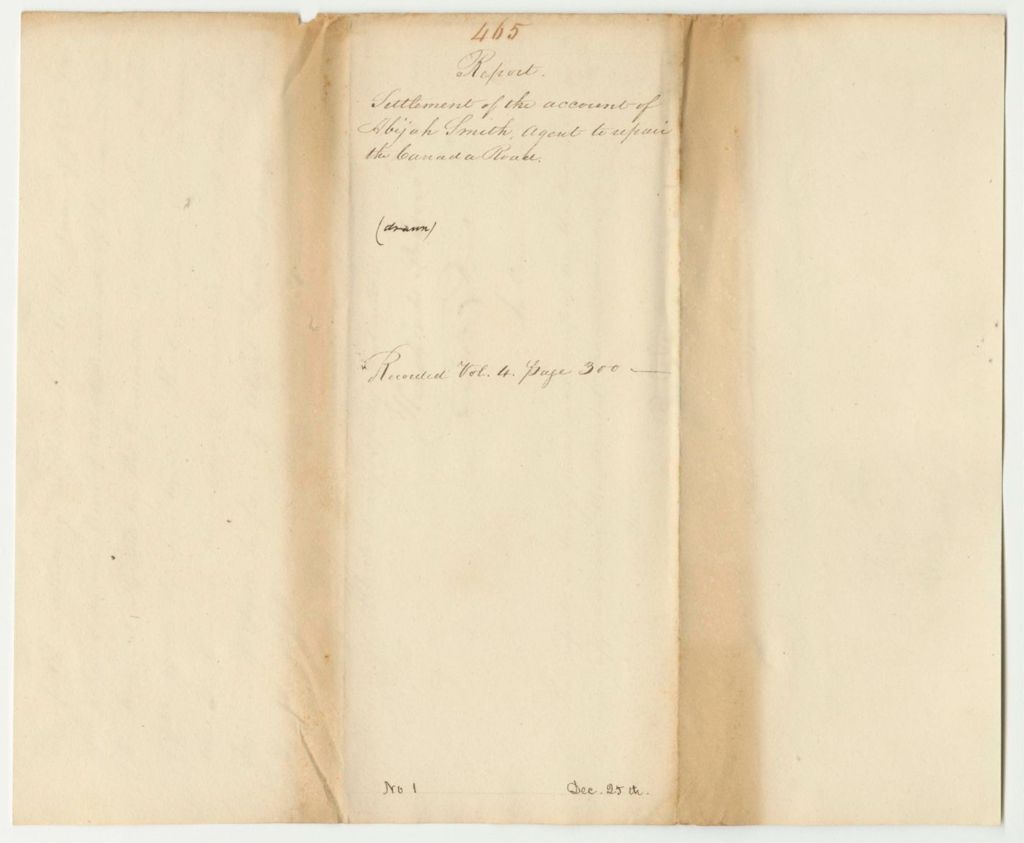 465
Report.
Settlement of the account of
Abijah Smith, Agent to repair
the Canada Road.
(drawn)
Recorded Vol. 4. Page 300 —
No 1 Dec. 25th.